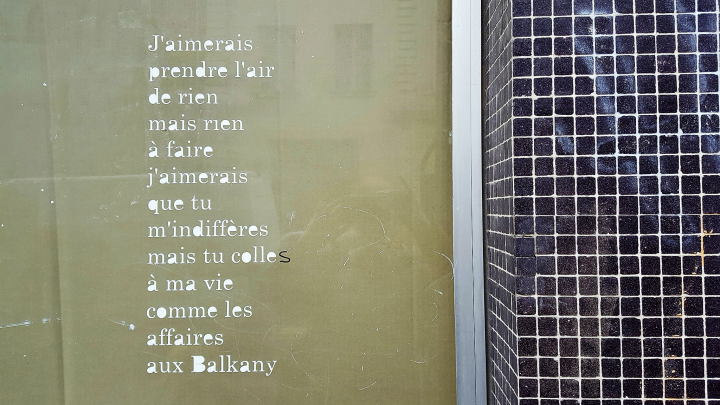 J'aimerais
prendre l'air
de rien
mais rien
à faire
j'aimerais
que tu
m'indiffères
mais tu colles
à ma vie
comme les
affaires
aux Balkany